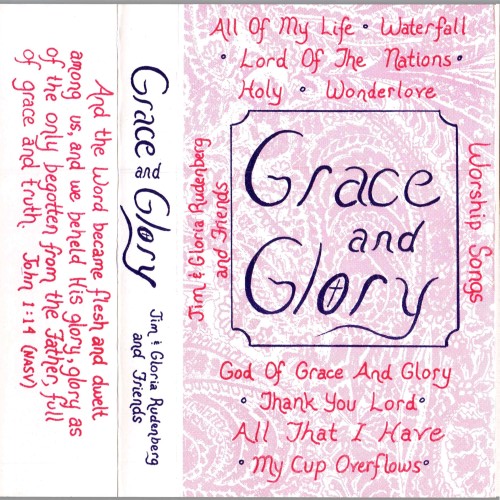 And the Word became flesh and dwelt
among us, and we beheld His glory, glory as
of the only begotten from the Father, full
of grace and truth. John 1:14 (NASV)
Grace and Glory
Jim & Gloria Rudenberg
and Friends
All Of My Life • Waterfall
• Lord Of The Nations •
Holy • Wonderlove
Jim & Gloria Rudenberg
and Friends
Grace
and
Glory
Worship Songs
God Of Grace And Glory
• Thank You Lord •
All That I Have
• My Cup Overflows •